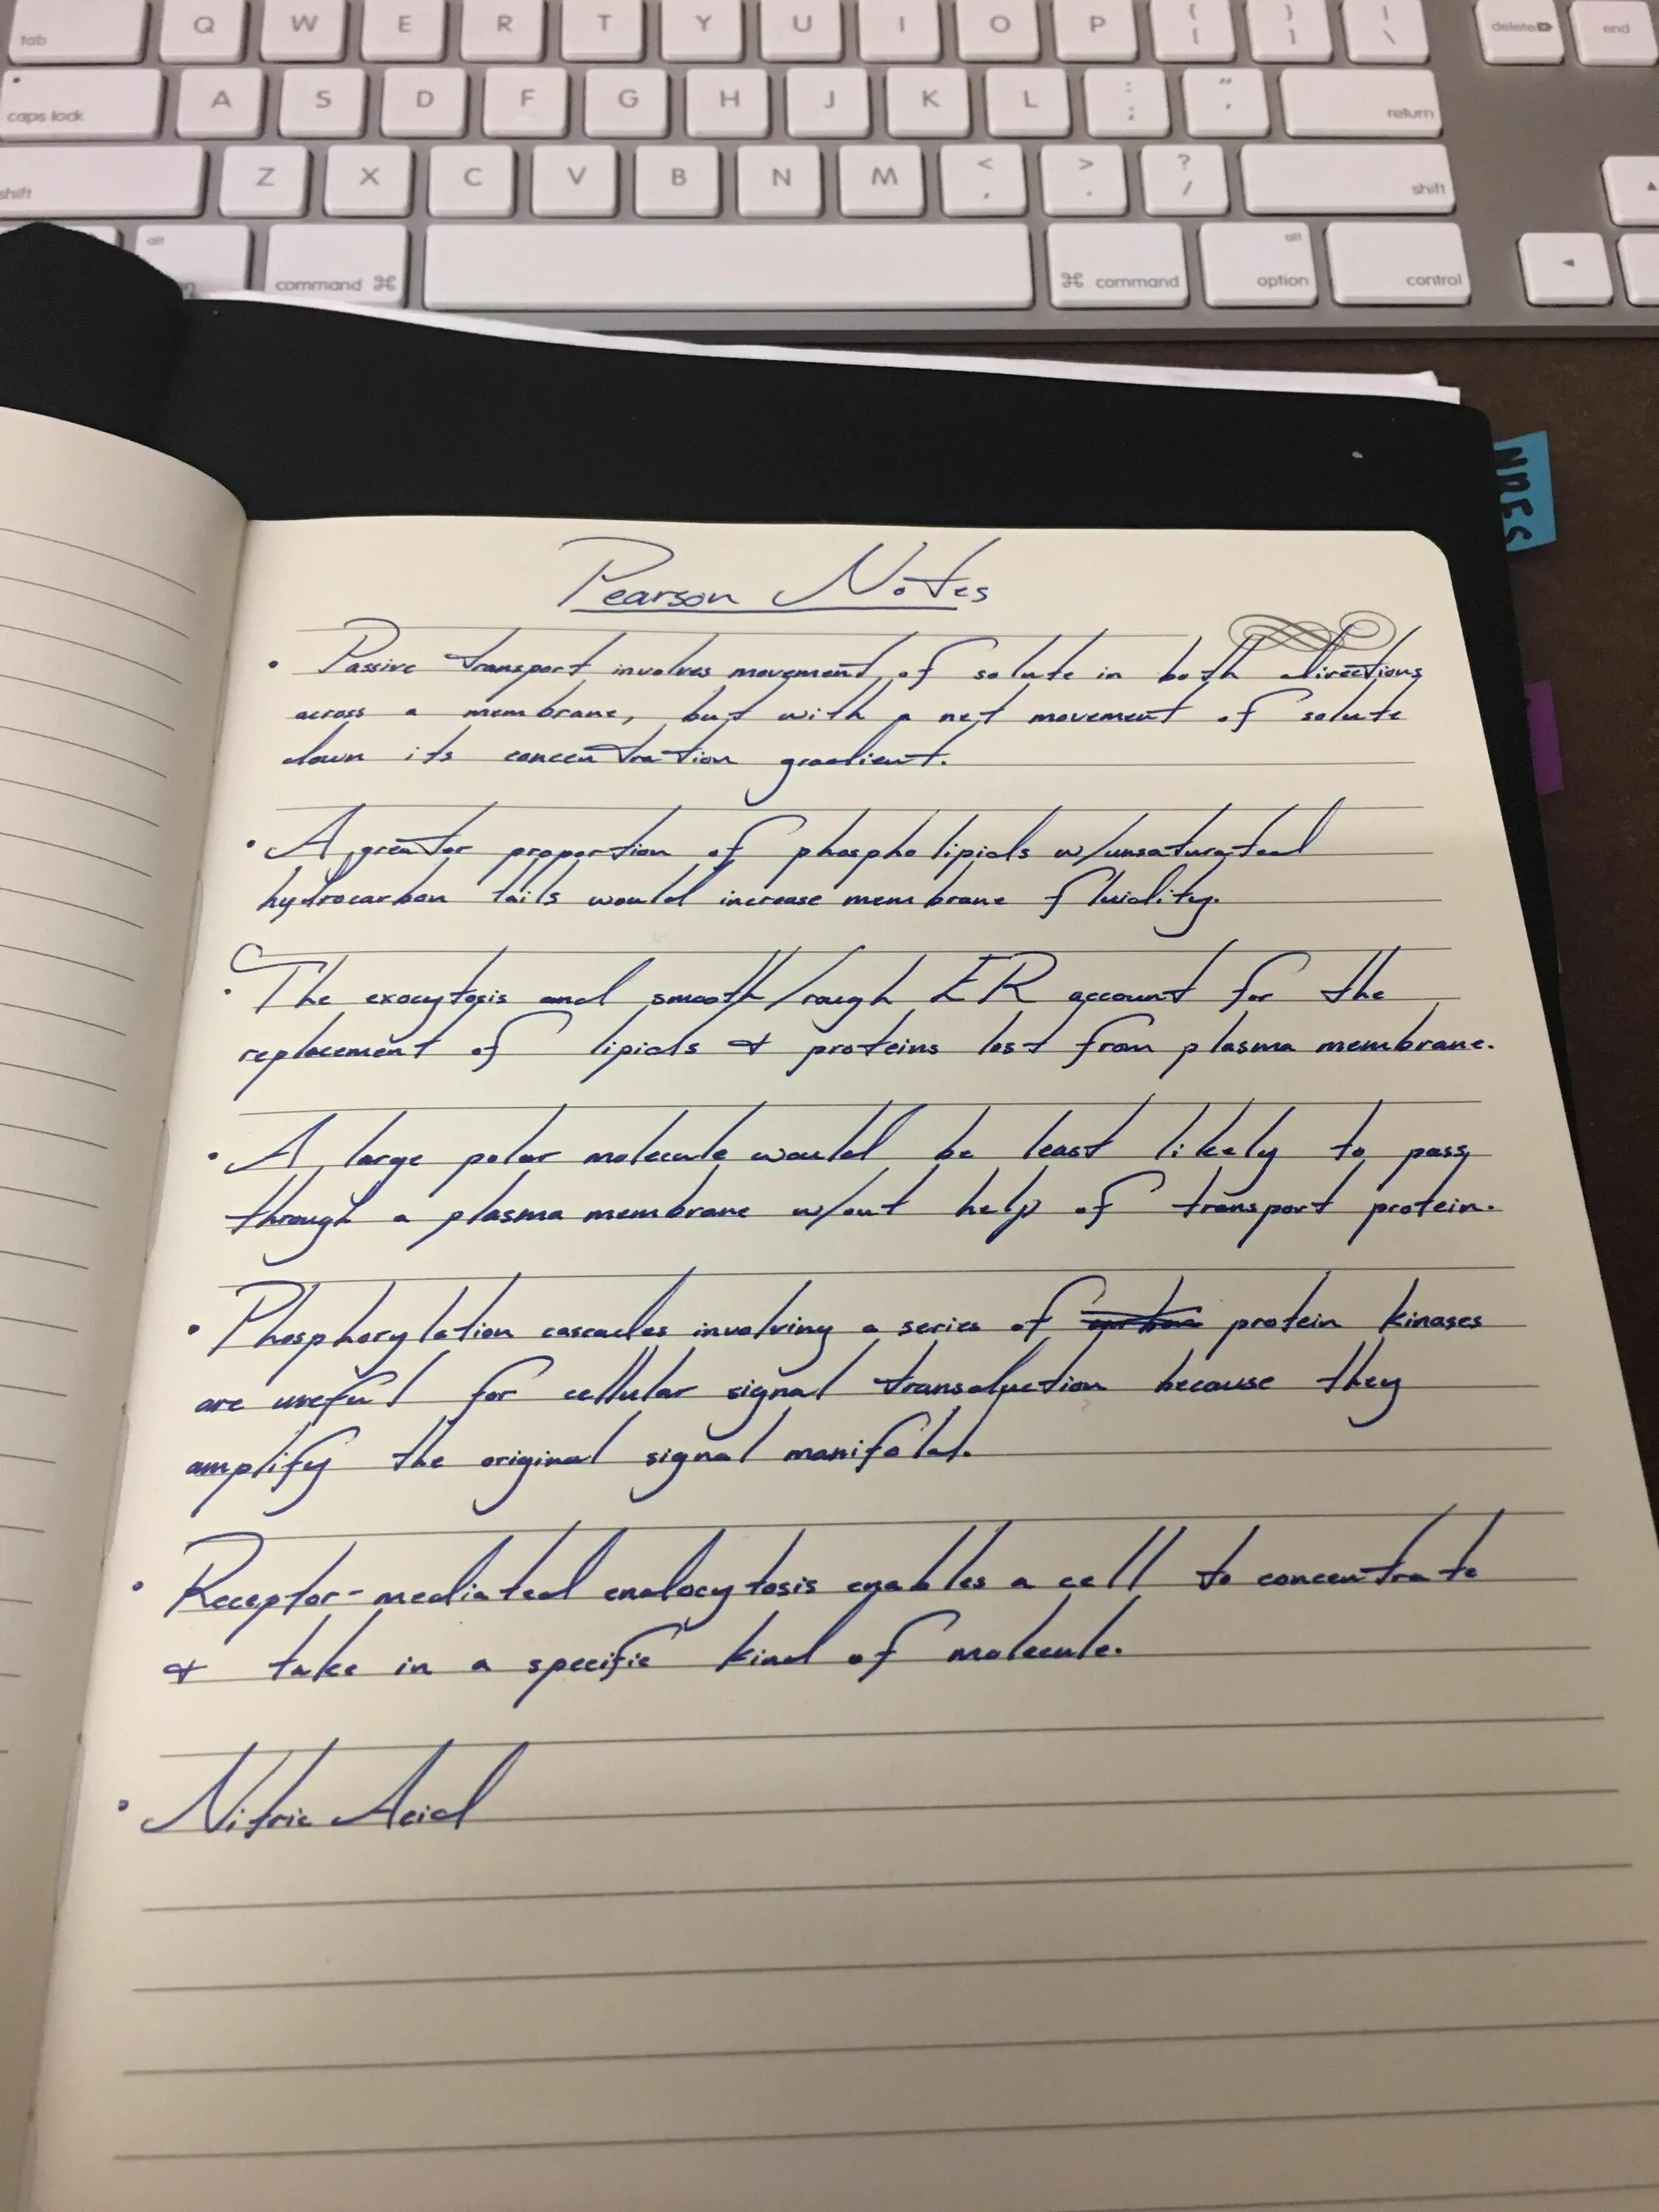 tab Q W E R T Y U I O P { [ } ] | \ delete end
caps lock A S D F G H J K L : ; " ' return
shift Z X C V B N M < , > . ? / shift
alt command ⌘ ⌘ command alt option control
NOTES
Pearson Notes
• Passive transport involves movement of solute in both directions
across a membrane, but with a net movement of solute
down its concentration gradient.
• A greater proportion of phospholipids w/unsaturated
hydrocarbon tails would increase membrane fluidity.
• The exocytosis and smooth/rough ER account for the
replacement of lipids & proteins lost from plasma membrane.
• A large polar molecule would be least likely to pass
through a plasma membrane w/out help of transport protein.
• Phosphorylation cascades involving a series of protein kinases
are useful for cellular signal transduction because they
amplify the original signal manifold.
• Receptor-mediated endocytosis enables a cell to concentrate
& take in a specific kind of molecule.
• Nitric Acid